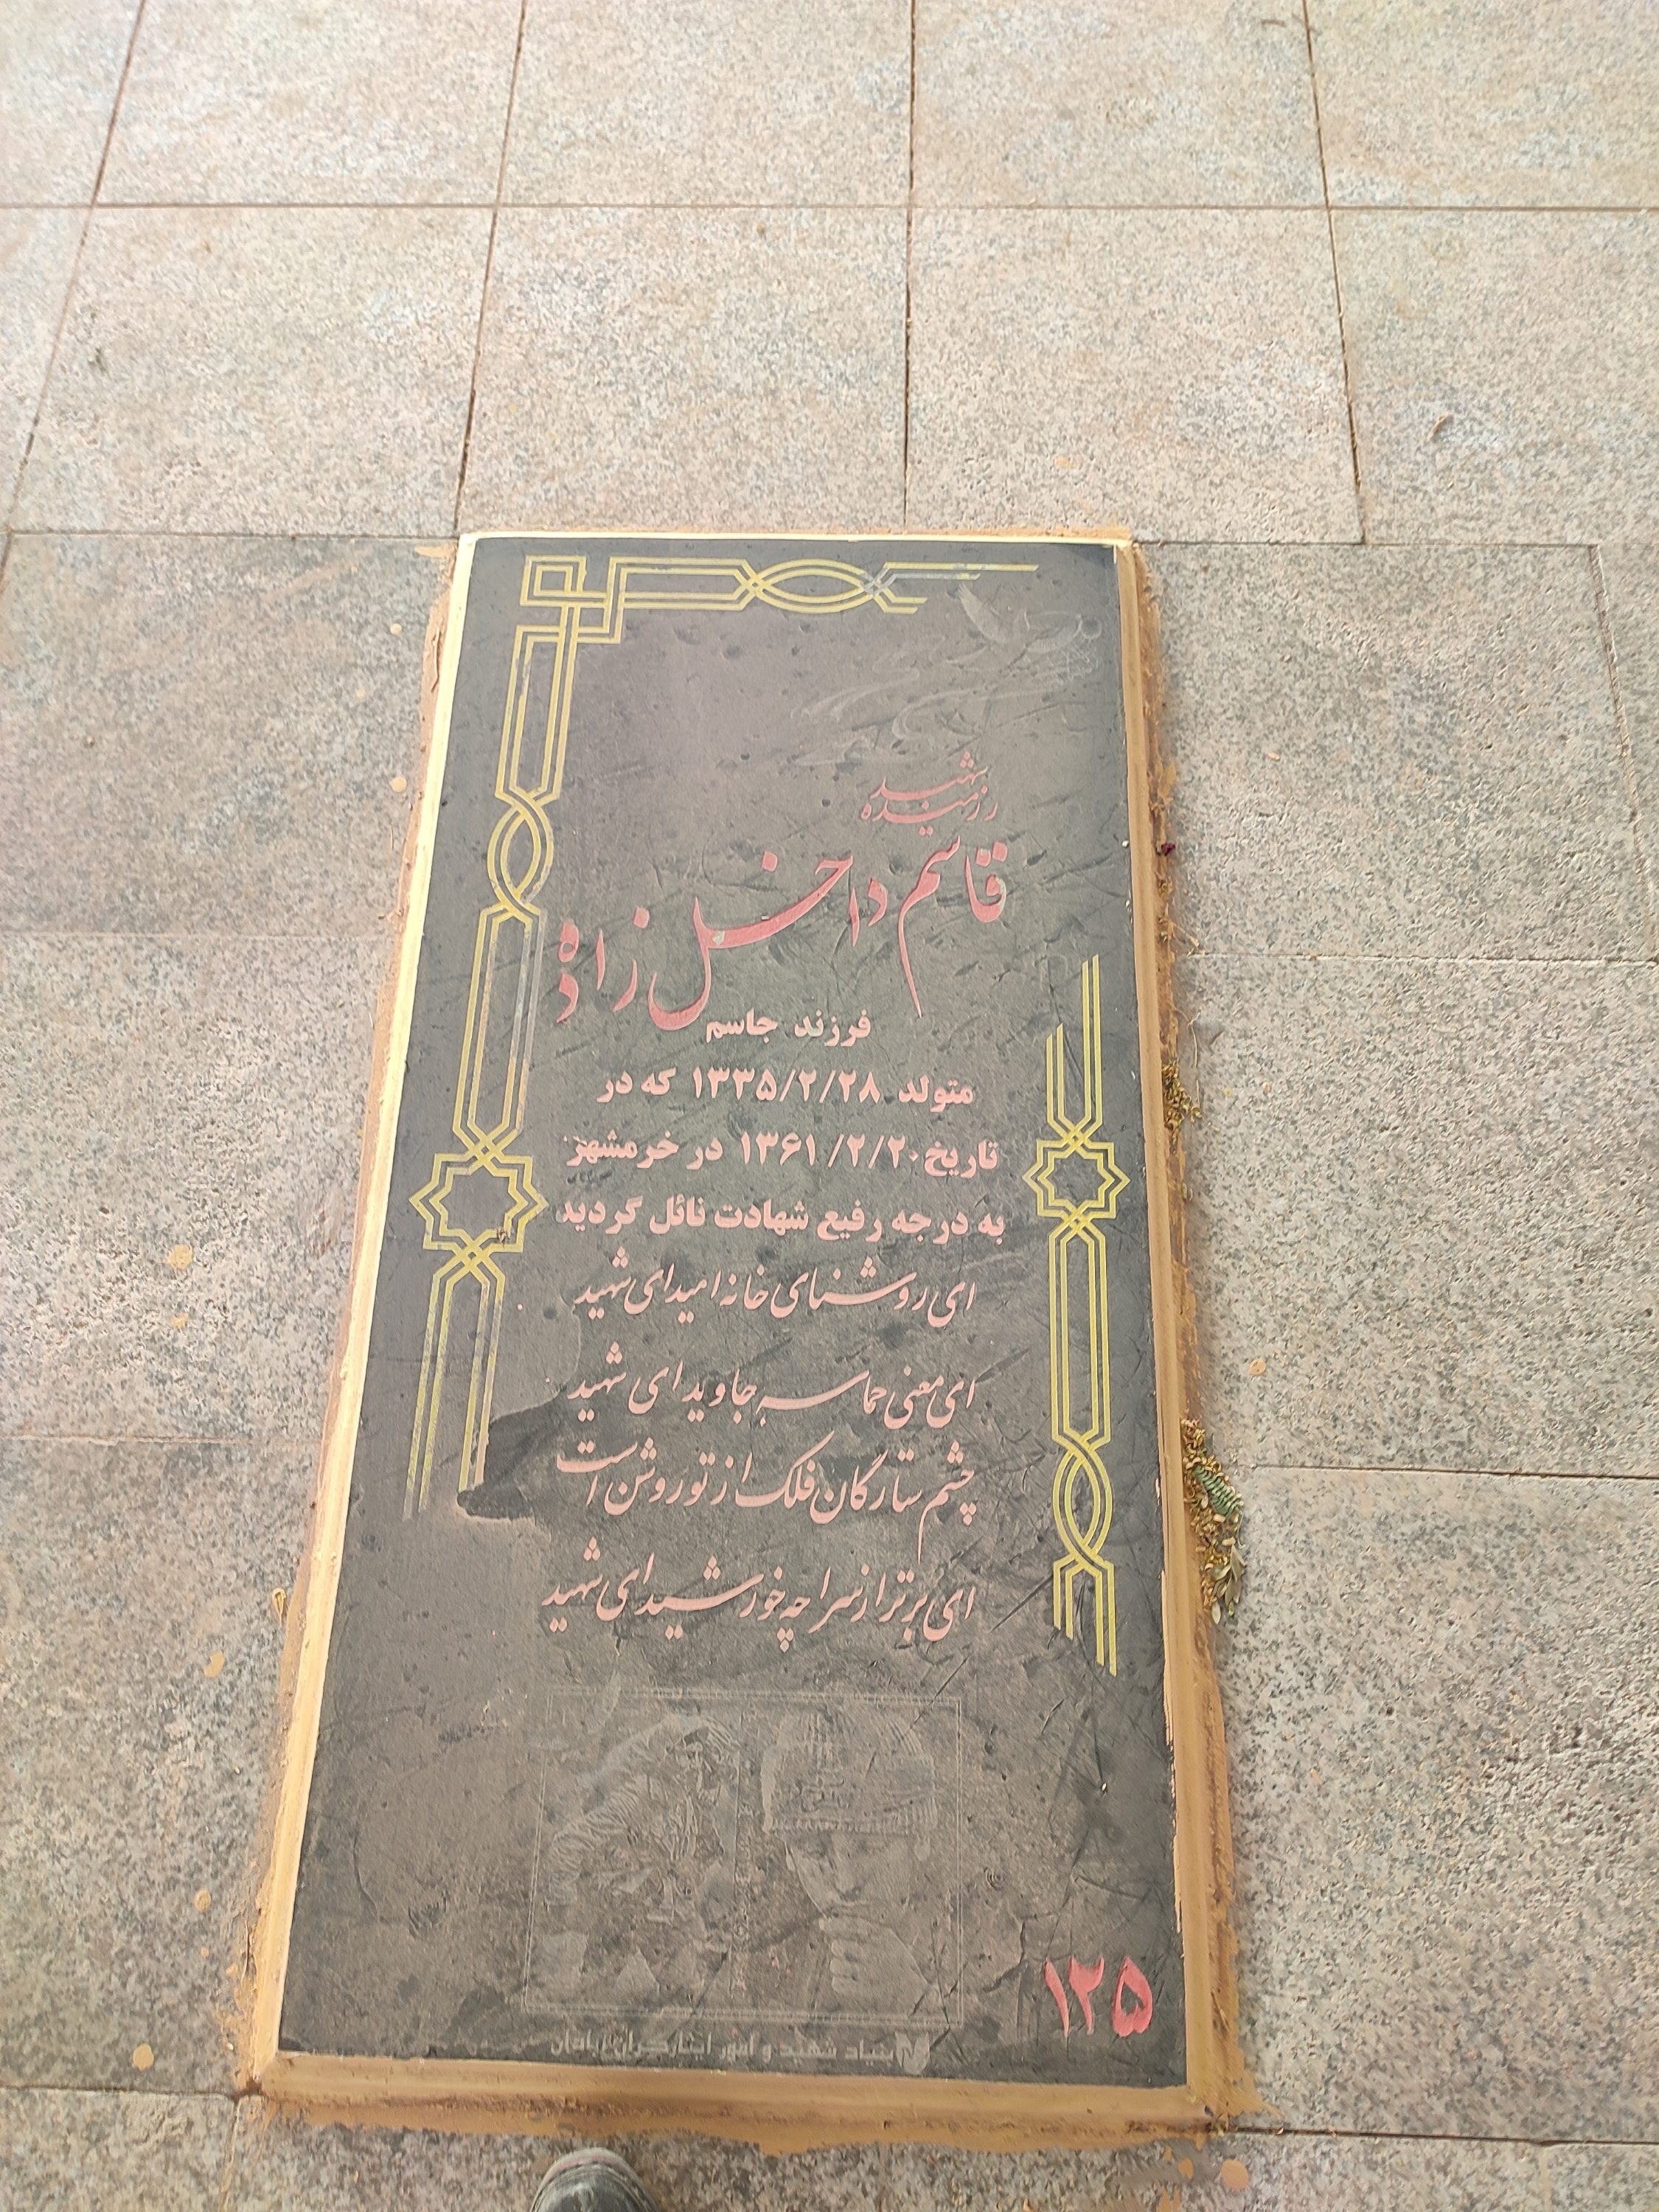 شهید
رزمنده
قاسم داخل زاده
فرزند جاسم
متولد ۱۳۳۵/۲/۲۸ که در
تاریخ ۱۳۶۱/۲/۲۰ در خرمشهر
به درجه رفیع شهادت نائل گردید
ای روشنای خانه امید ای شهید
ای معنی حماسه جاوید ای شهید
چشم ستارگان فلک از تو روشن است
ای برتر از سراچه خورشید ای شهید
۱۲۵
بنیاد شهید و امور ایثارگران آبادان